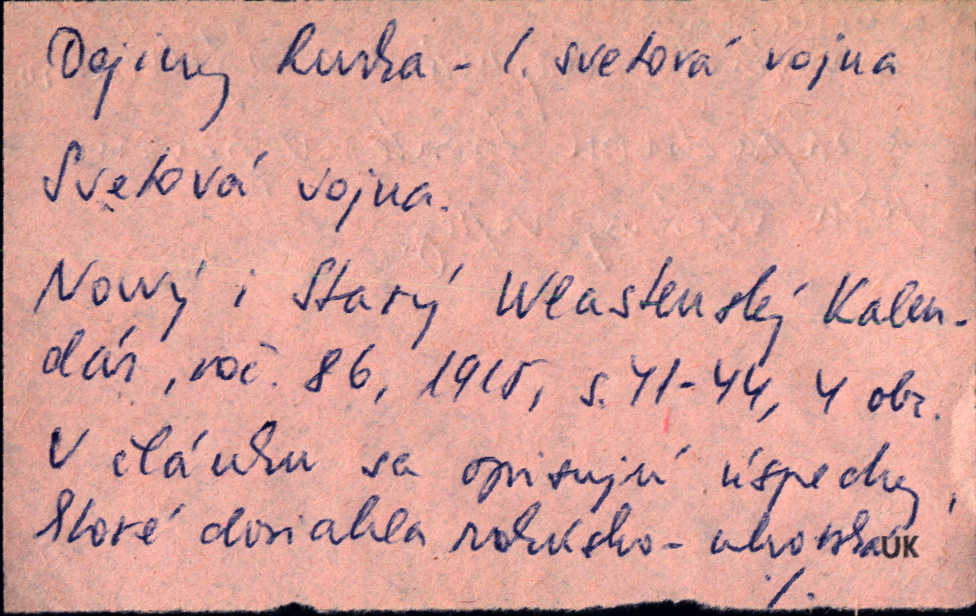 Dejiny Ruska - 1. svetová vojna
Svetová vojna.
Nowý i Starý Wlastenský Kalen-
dár, roč. 86, 1915, s. 41-44, 4 obr.
V článku sa opisujú úspechy,
ktoré dosiahla rakúsko-uhorská ÚK
./.